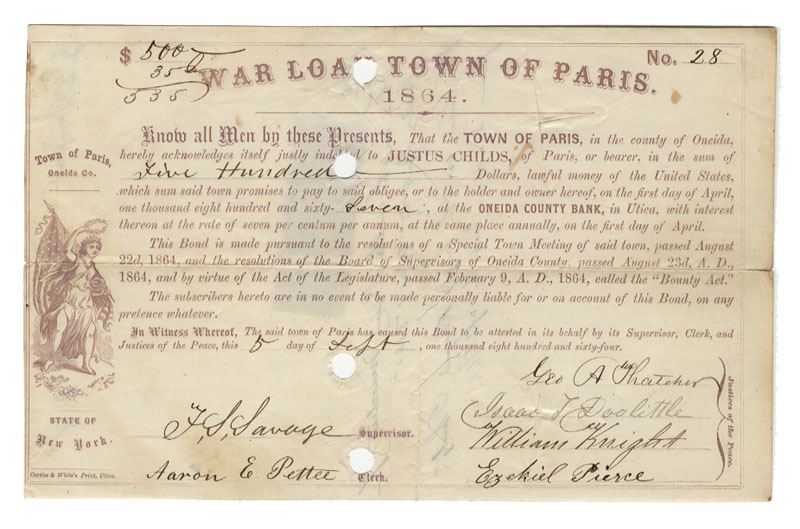 $ 500
35
535
No. 28
WAR LOAN TOWN OF PARIS.
1864.
Town of Paris,
Oneida Co.
Know all Men by these Presents, That the TOWN OF PARIS, in the county of Oneida,
hereby acknowledges itself justly indebted to JUSTUS CHILDS, of Paris, or bearer, in the sum of
Five Hundred Dollars, lawful money of the United States,
which sum said town promises to pay to said obligee, or to the holder and owner hereof, on the first day of April,
one thousand eight hundred and sixty-Seven, at the ONEIDA COUNTY BANK, in Utica, with interest
thereon at the rate of seven per centum per annum, at the same place annually, on the first day of April.
This Bond is made pursuant to the resolutions of a Special Town Meeting of said town, passed August
22d, 1864, and the resolutions of the Board of Supervisors of Oneida County, passed August 23d, A. D.,
1864, and by virtue of the Act of the Legislature, passed February 9, A. D., 1864, called the "Bounty Act."
The subscribers hereto are in no event to be made personally liable for or on account of this Bond, on any
pretence whatever.
In Witness Whereof, The said town of Paris has caused this Bond to be attested in its behalf by its Supervisor, Clerk, and
Justices of the Peace, this 5 day of Sept, one thousand eight hundred and sixty-four.
Geo A Thatcher
Isaac T Doolittle
William Knight
Ezekiel Pierce
Justices of the Peace.
F. S. Savage Supervisor.
Aaron E Pettee Clerk.
STATE OF
New York.
Curtiss & White's Print, Utica.